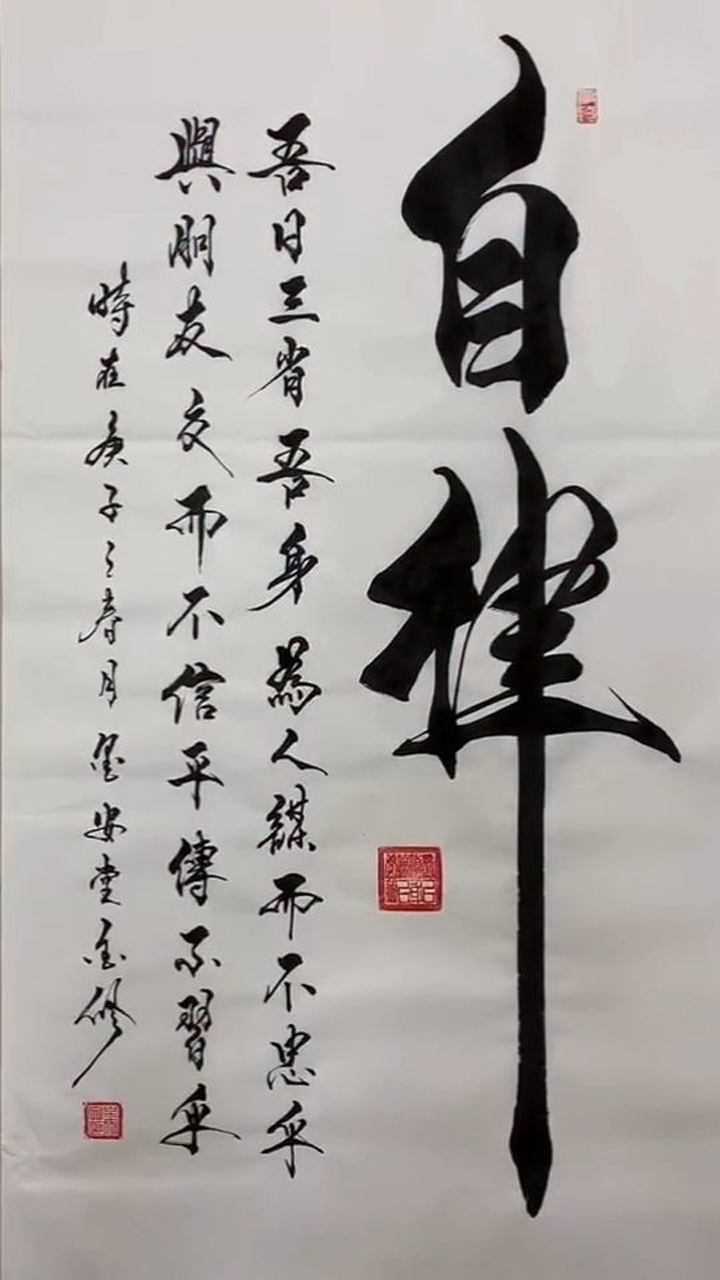 自律
吾日三省吾身為人謀而不忠乎
與朋友交而不信乎傳不習乎
時在庚子之春月墨安堂金修